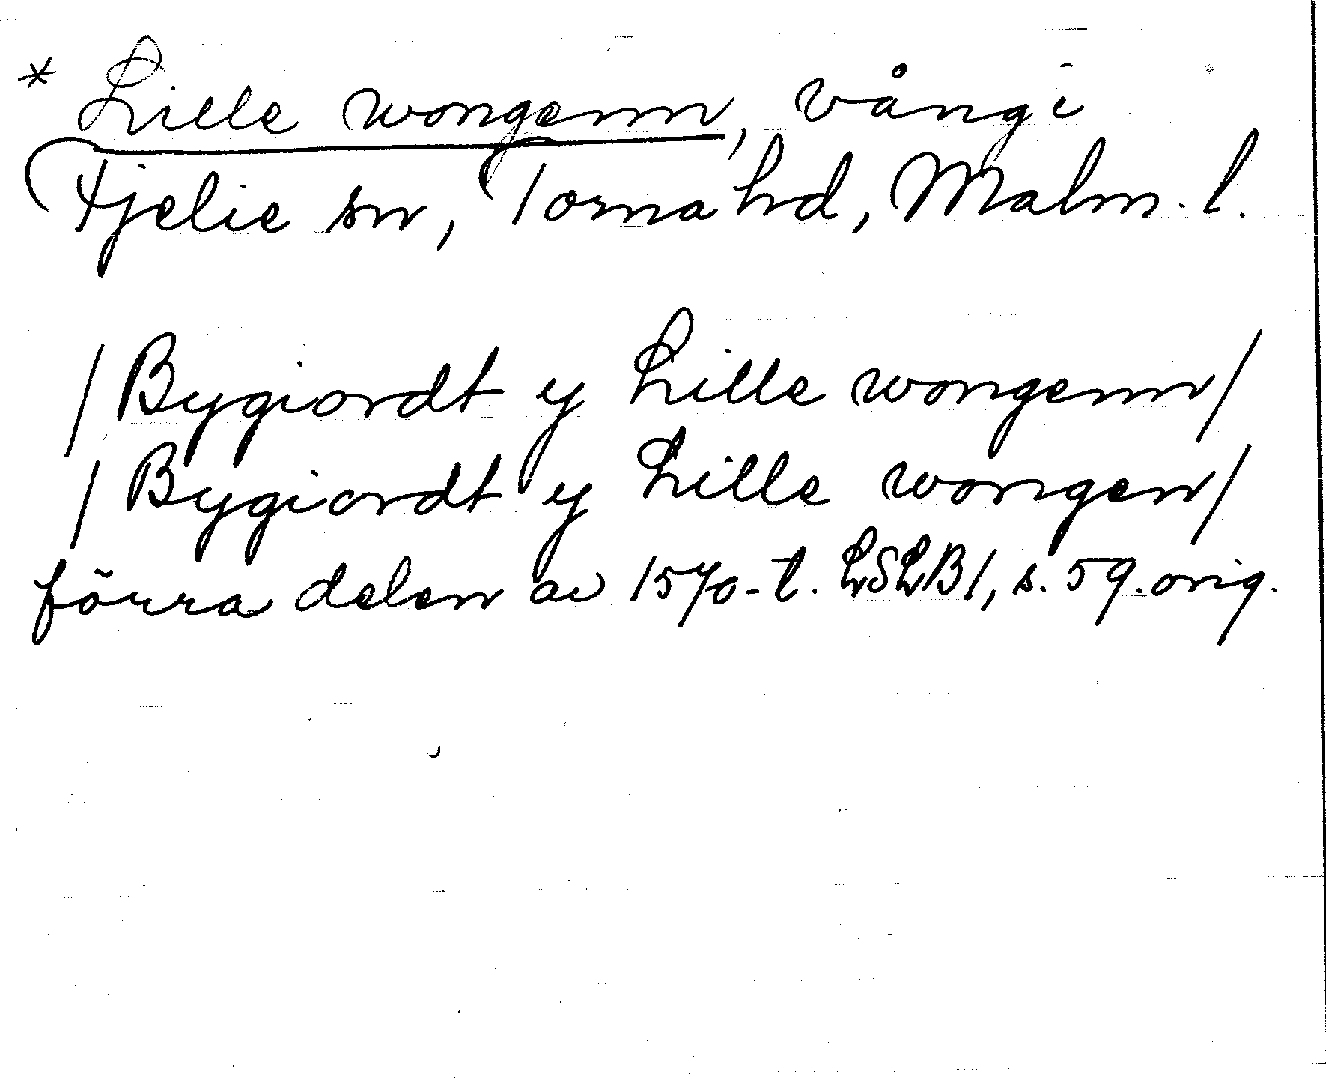 * Lille wongenn, vång i
Fjelie sn, Torna hd, Malm. l.
/Bygiordt y Lille wongenn/
/Bygiordt y Lille wongen/
förra delen av 1570-t. LSLB1, s. 59. orig.